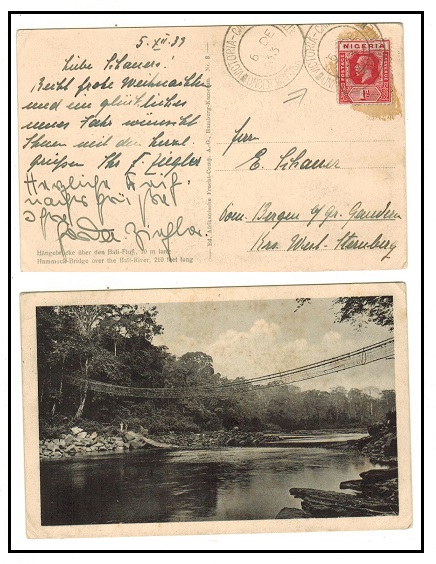 5. XII. 33
Liebe Schauers!
Recht frohe Weihnachten
und ein glückliches
neues Jahr wünscht
Ihnen mit den herzl.
Grüßen Ihr F. Ziegler
Herzliche
Ziegler
Hängebrücke über den Buti-Fluß, 70 m lang
Hammock-Bridge over the Buti-River, 210 feet long
Ed. Afrikanische Frucht-Comp. A.-G., Hamburg-Kamerun. Nr. 8
VICTORIA-C
6 DE
33
NIGERIA
POSTAGE
1d
Herrn
E. Schauer
Dom. Bergen b/ Gr. Gandern
Krs. West-Sternberg